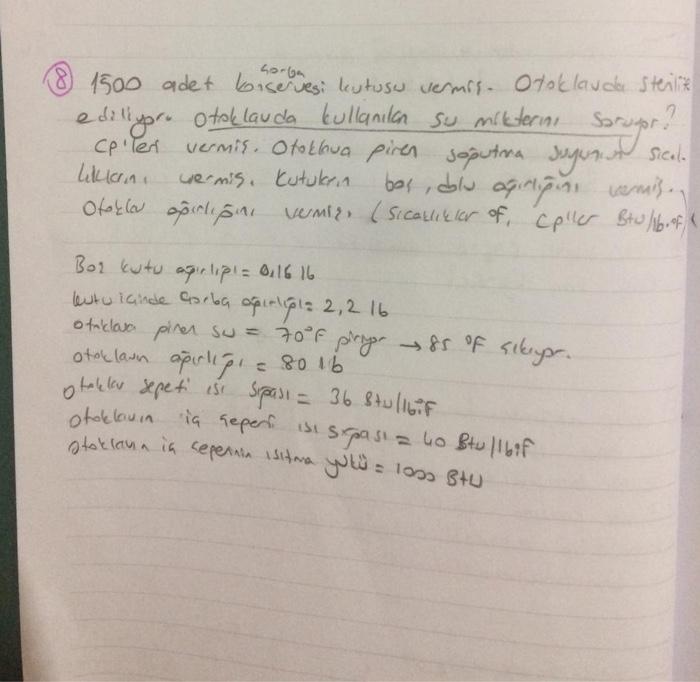 8 1500 adet çorba konservesi kutusu vermiş. Otoklavda steriliz
ediliyor. Otoklavda kullanılan su miktarını soruyor?
cp'leri vermiş. Otoklava giren soğutma suyunun sıcak-
lıklarını vermiş. Kutuların boş, dolu ağırlığını vermiş.
Otoklav ağırlığını vermiş. (Sıcaklıklar °F, Cp'ler Btu/lb.°F)
Boş kutu ağırlığı = 0,16 lb
kutu içinde çorba ağırlığı = 2,2 lb
otoklava giren su = 70°F giriyor → 85 °F çıkıyor.
otoklavın ağırlığı = 80 lb
otoklav sepeti ısı sığası = 36 Btu/lb°F
otoklavın iç çeperi ısı sığası = 40 Btu/lb°F
otoklavın iç çeperinin ısıtma yükü = 1000 BTU